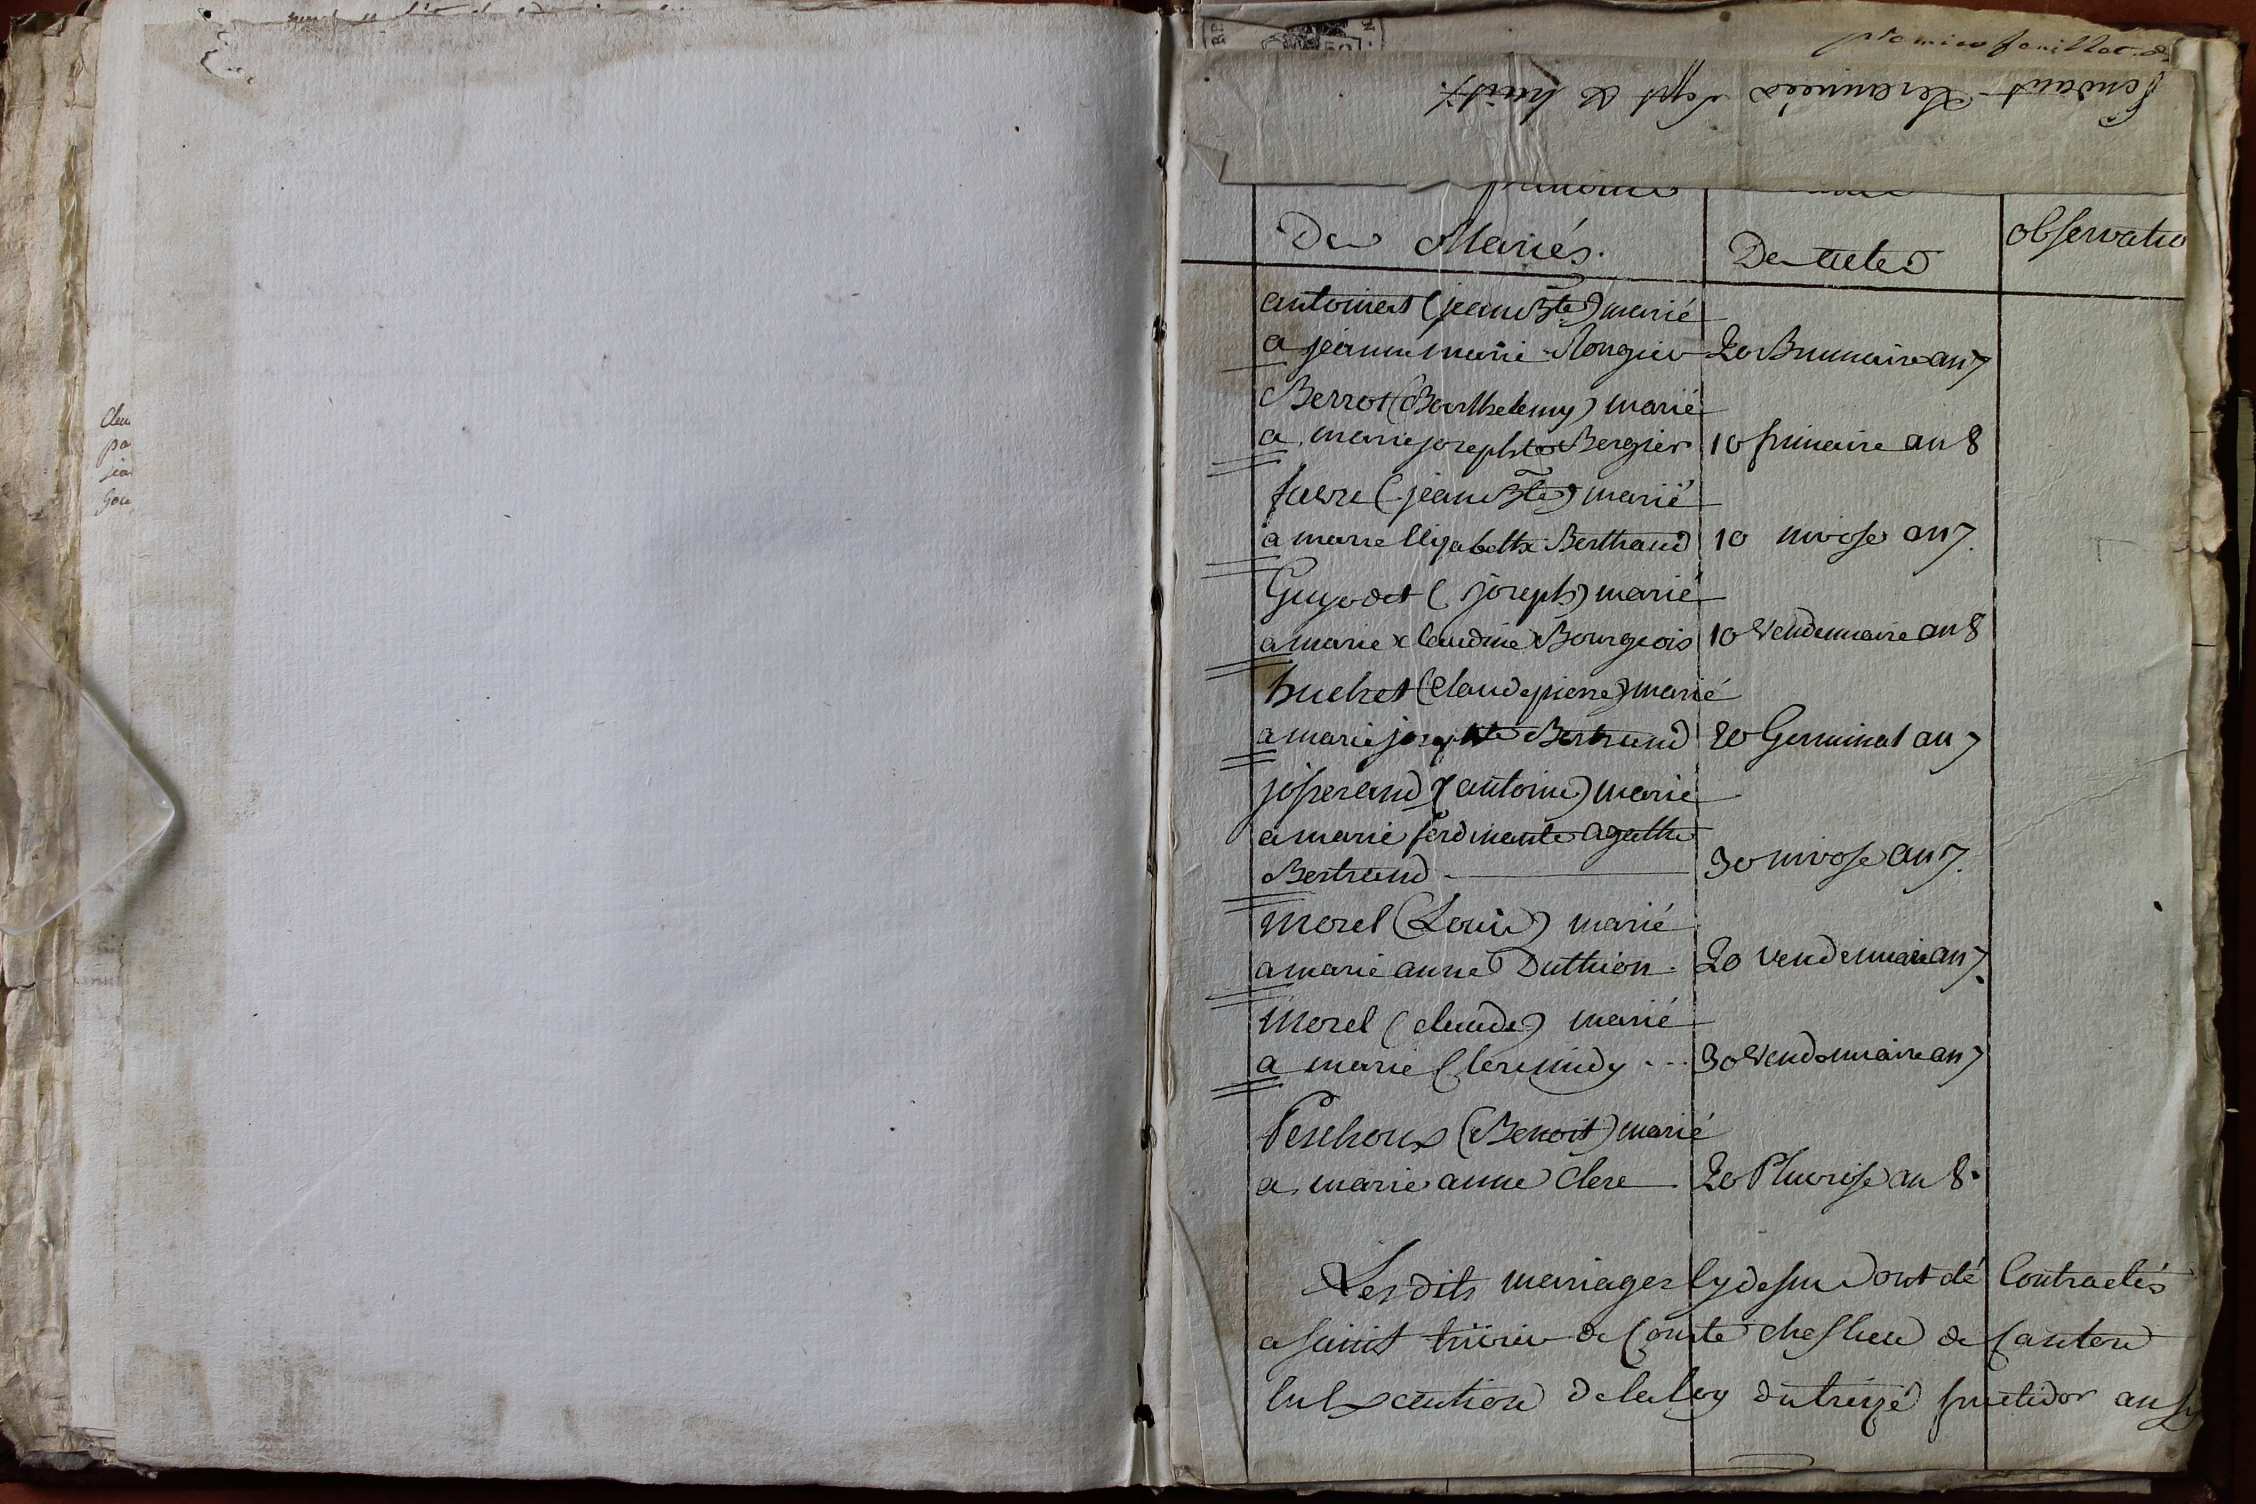 premier feuillet
Pendant Les années Sept & huit
prénoms
Des Mariés.
Des actes
observatio
antoinet (jean Bte) marié
a jeanne marie Rongier 20 Brumaire an 7
Berrot (Barthelemy) marié
a marie josephte Bergier 10 frimaire an 8
favre (jean Bte) marié
a marie Elyzabethe Berthand 10 nivose an 7.
Guyodet (joseph) marié
a marie claudine Bourgeois 10 Vendemiaire an 8
huchet (Claude pierre) marié
a marie josephte Bertrand 20 Germinal an 7
josserand (antoine) marié
a marie ferdinante agathe
Bertrand 30 nivose an 7.
Morel (Louis) marié
a marie anne Duthion 20 vendemiaire an 7.
Morel (claude) marié
a marie Clermidy 30 Vendemiaire an 7
Peschoux (Benoit) marié
a marie anne Clerc 20 Pluviose an 8.
Les dits mariages Cy dessu Sont été Contractés
a Saint de Comte chef lieu de Canton
En Execution de la loy du treize fructidor an
Clau
pa
jea